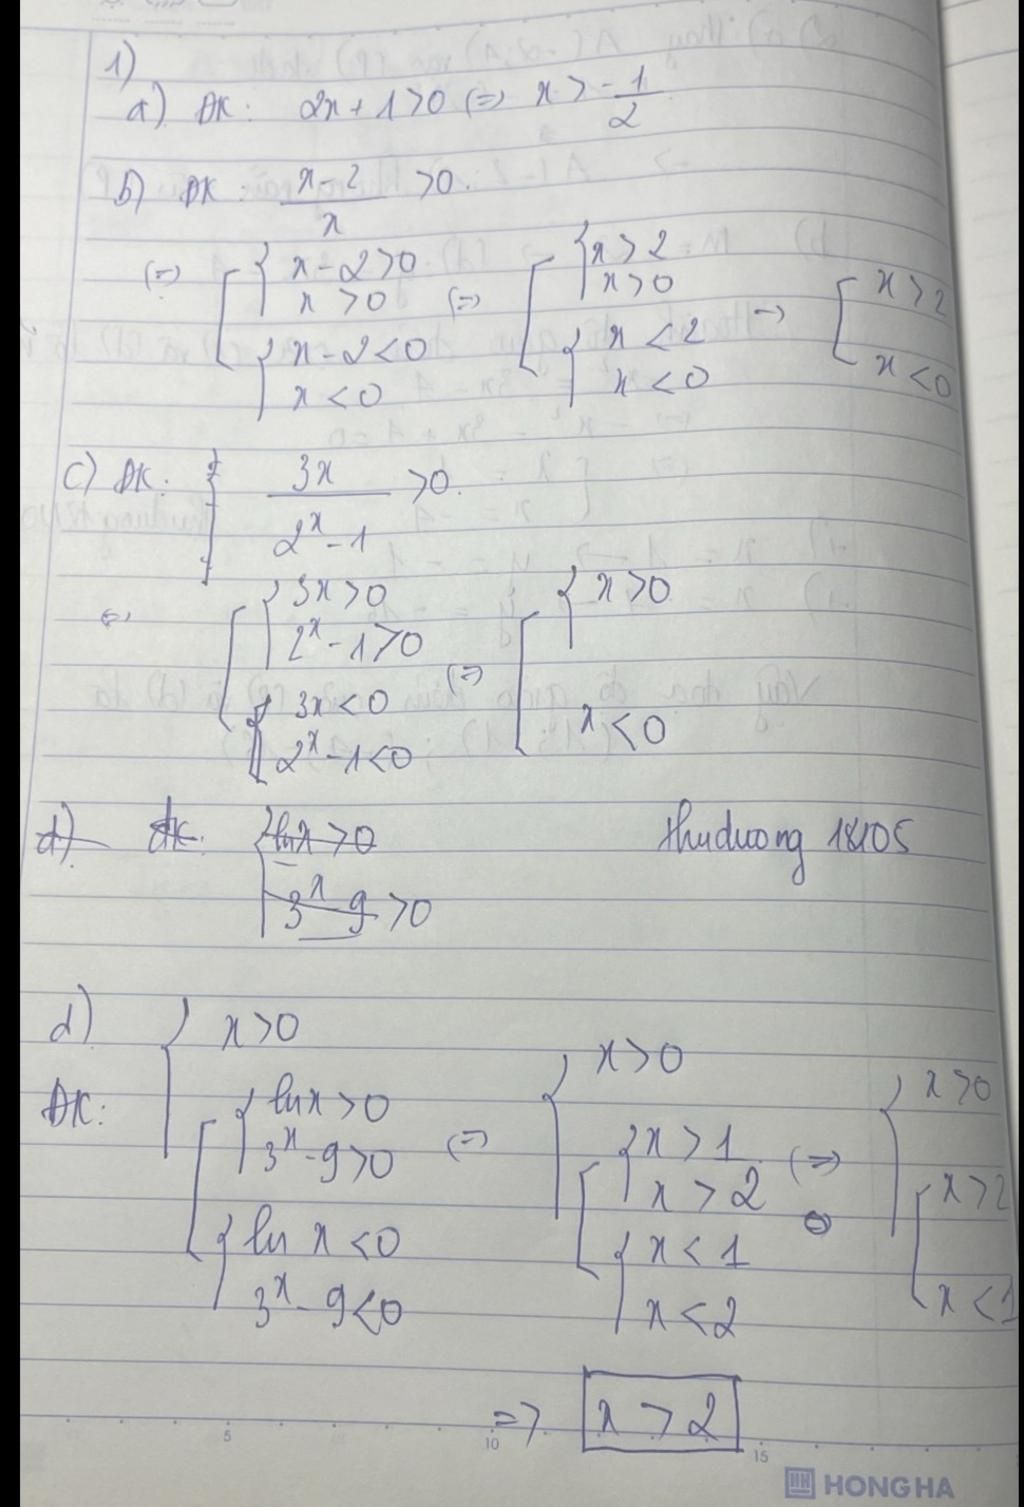 1)
a) ĐK: 2x + 1 > 0 (=) x > -1/2
b) ĐK: (x-2)/x > 0.
(=) [ { x - 2 > 0 ; x > 0 ; { x - 2 < 0 ; x < 0 (=) [ { x > 2 ; x > 0 ; { x < 2 ; x < 0 → [ x > 2 ; x < 0
c) ĐK: { 3x/(2^x - 1) > 0.
(=) [ { 3x > 0 ; 2^x - 1 > 0 ; { 3x < 0 ; 2^x - 1 < 0 (=) [ { x > 0 ; x < 0
d) ĐK: { lnx > 0 ; 3^x - 9 > 0
thuduong 18105
d)
ĐK: { x > 0 ; [ { lnx > 0 ; 3^x - 9 > 0 ; { ln x < 0 ; 3^x - 9 < 0 (=) { x > 0 ; [ { x > 1 ; x > 2 ; { x < 1 ; x < 2 (=) { x > 0 ; [ x > 2 ; x < 1
=> x > 2
5 10 15
HONG HA